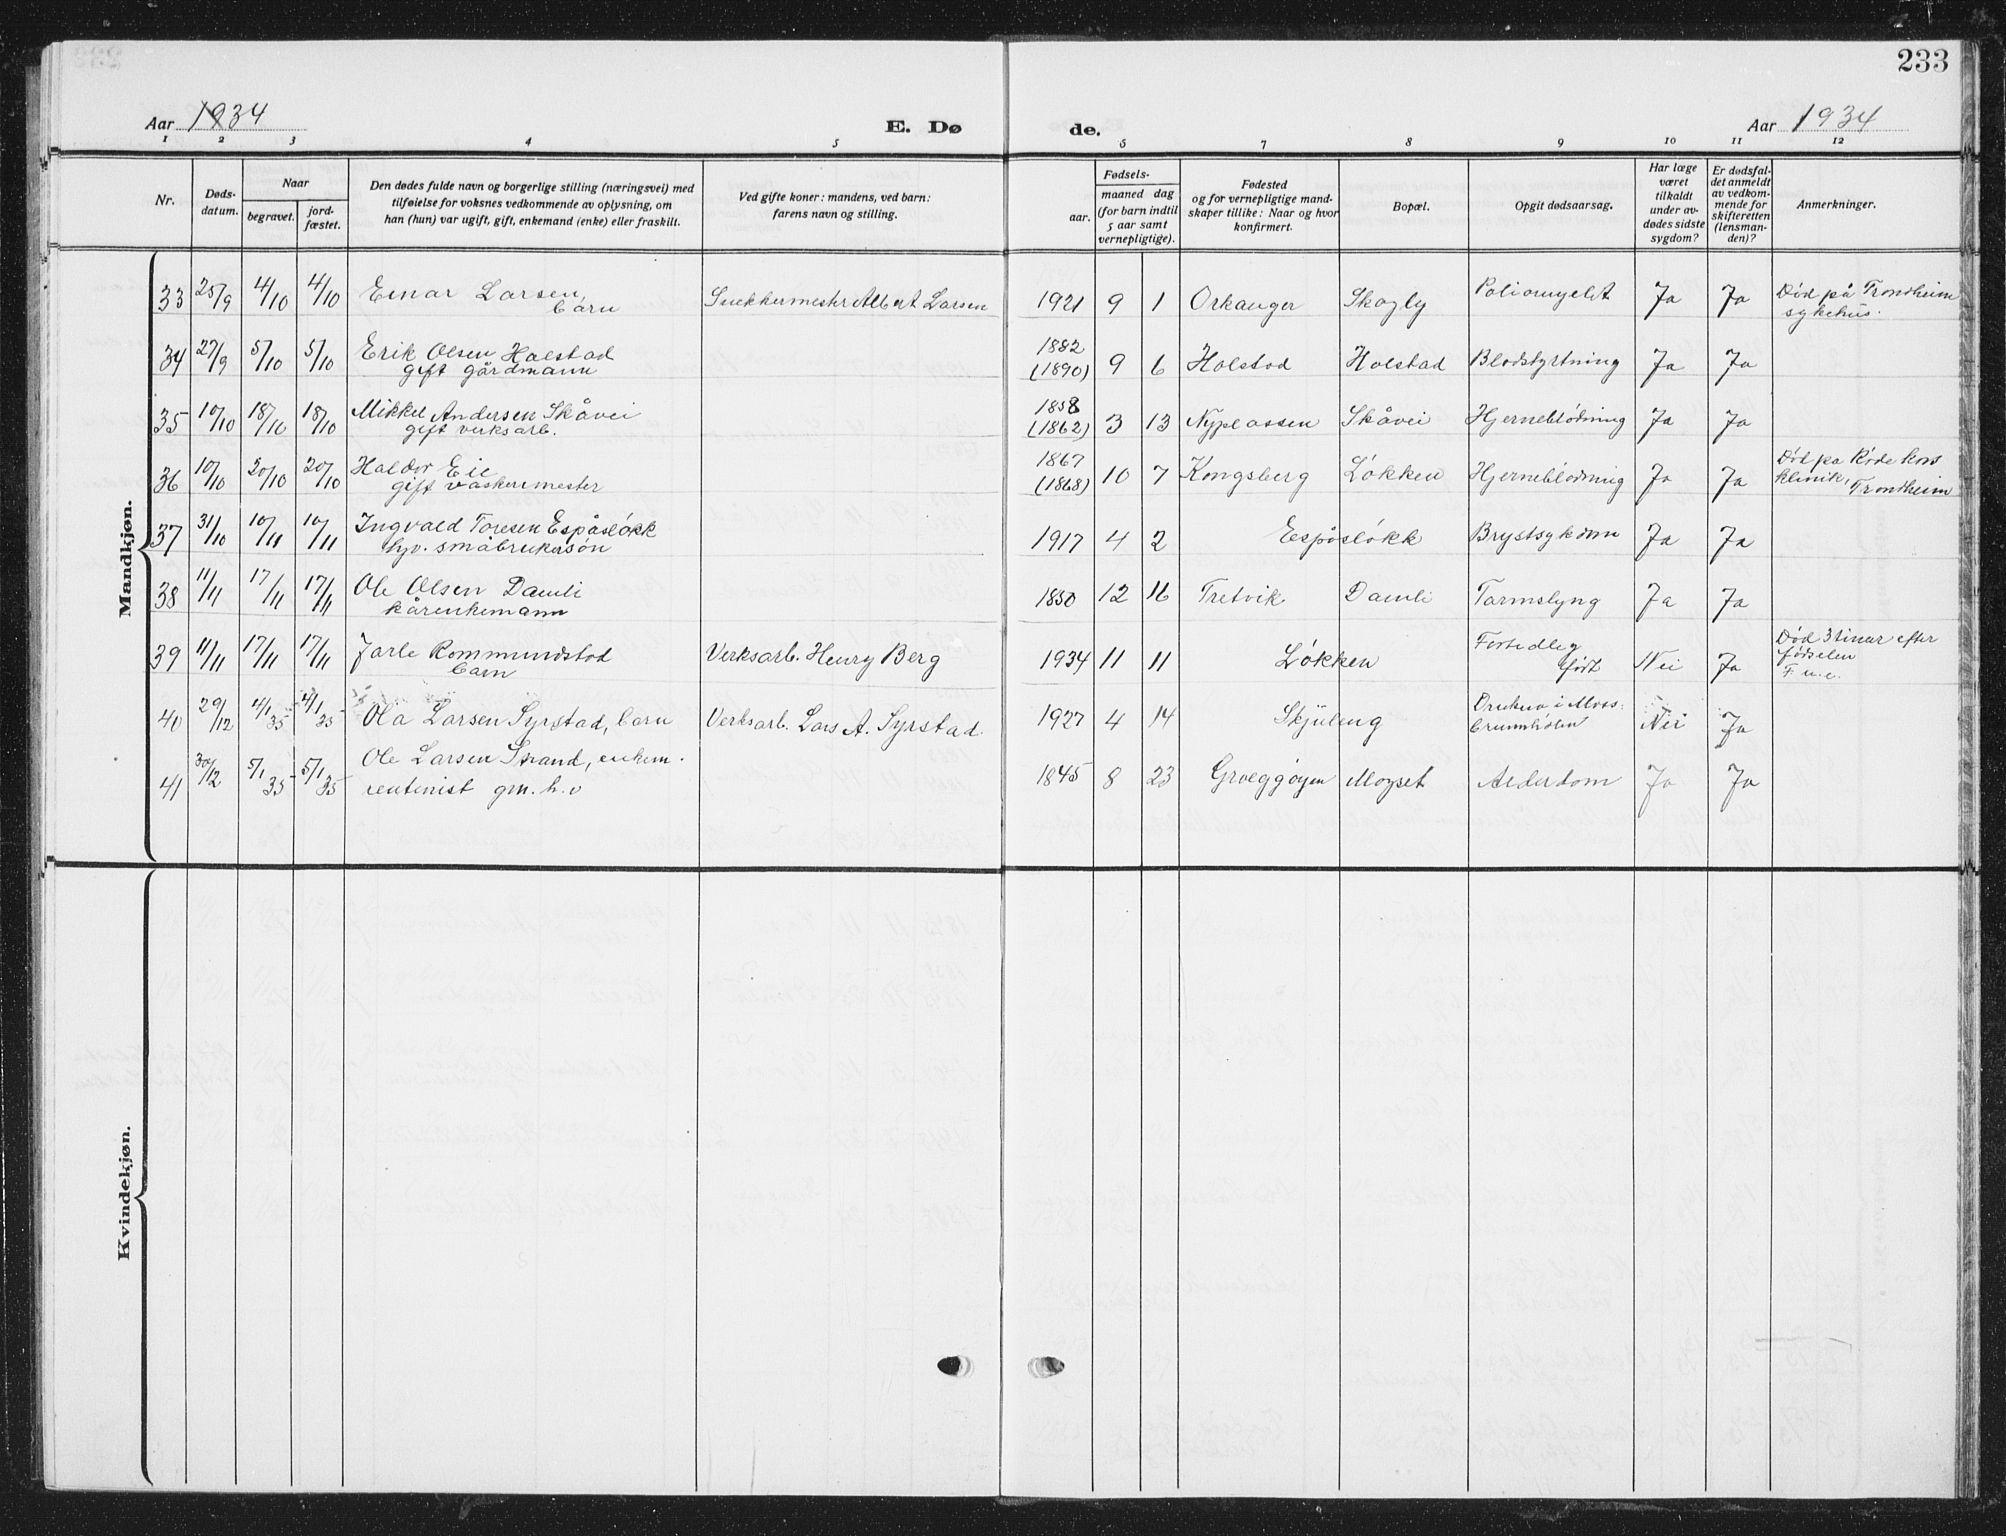 233
Aar 1934
E. Dø
de.
Aar 1934
1 2 3 4 5 6 7 8 9 10 11 12
Nr.
Døds-
datum.
Naar
begravet.
jord-
fæstet.
Den dødes fulde navn og borgerlige stilling (næringsvei) med
tilføielse for voksnes vedkommende av oplysning, om
han (hun) var ugift, gift, enkemand (enke) eller fraskilt.
Ved gifte koner: mandens, ved barn:
farens navn og stilling.
Fødsels-
aar.
maaned dag
(for barn indtil
5 aar samt
vernepligtige).
Fødested
og for vernepligtige mand-
skaper tillike: Naar og hvor
konfirmert.
Bopæl.
Opgit dødsaarsag.
Har læge
været
tilkaldt
under av-
dødes sidste
sygdom?
Er dødsfal-
det anmeldt
av vedkom-
mende for
skifteretten
(lensman-
den)?
Anmerkninger.
Mandkjøn.
33 25/9 4/10 4/10 Einar Larsen, Snekkermester Albert Larsen 1921 9 1 Orkanger Skogly Poliomyelit Ja Ja Død på Trondheim
barn sykehus.
34 27/9 5/10 5/10 Erik Olsen Holstad 1882 9 6 Holstad Holstad Blodstyrtning Ja Ja
gift gårdmann (1890)
35 10/10 18/10 18/10 Mikkel Andersen Skåvei 1858 3 13 Nyplassen Skåvei Hjerneblødning Ja Ja
gift verksarb. (1862)
36 10/10 20/10 20/10 Haldor Eie 1867 10 7 Kongsberg Løkken Hjerneblødning Ja Ja Død på Røde kors
gift vaskermester (1868) klinik, Trondheim
37 31/10 10/11 10/11 Ingvald Toresen Espåsløkk 1917 4 2 Espåsløkk Brystsykdom Ja Ja
hjv. småbrukersøn
38 11/11 17/11 17/11 Ole Olsen Damli 1850 12 16 Tretvik Damli Tarmslyng Ja Ja
kårenkemann
39 11/11 17/11 17/11 Jarle Rommundstad Verksarb. Henry Berg 1934 11 11 Løkken Fortidlig Nei Ja Død 3 timer efter
barn født fødselen
40 29/12 4/1 35 4/1 35 Ola Larsen Syrstad, barn Verksarb. Lars A. Syrstad. 1927 4 14 Skjuleng Nei Ja
41 30/12 5/1 35 5/1 35 Ole Larsen Strand, enkem. 1845 8 23 Mogset Alderdom Ja Ja
rentenist gm. h. v
Kvindekjøn.